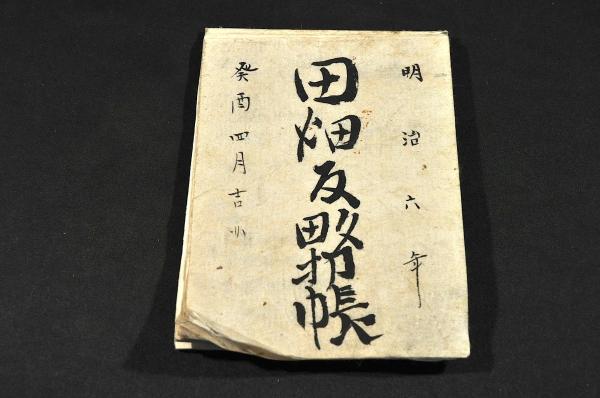 明治六年
田畑反畝扣帳
癸酉四月吉日